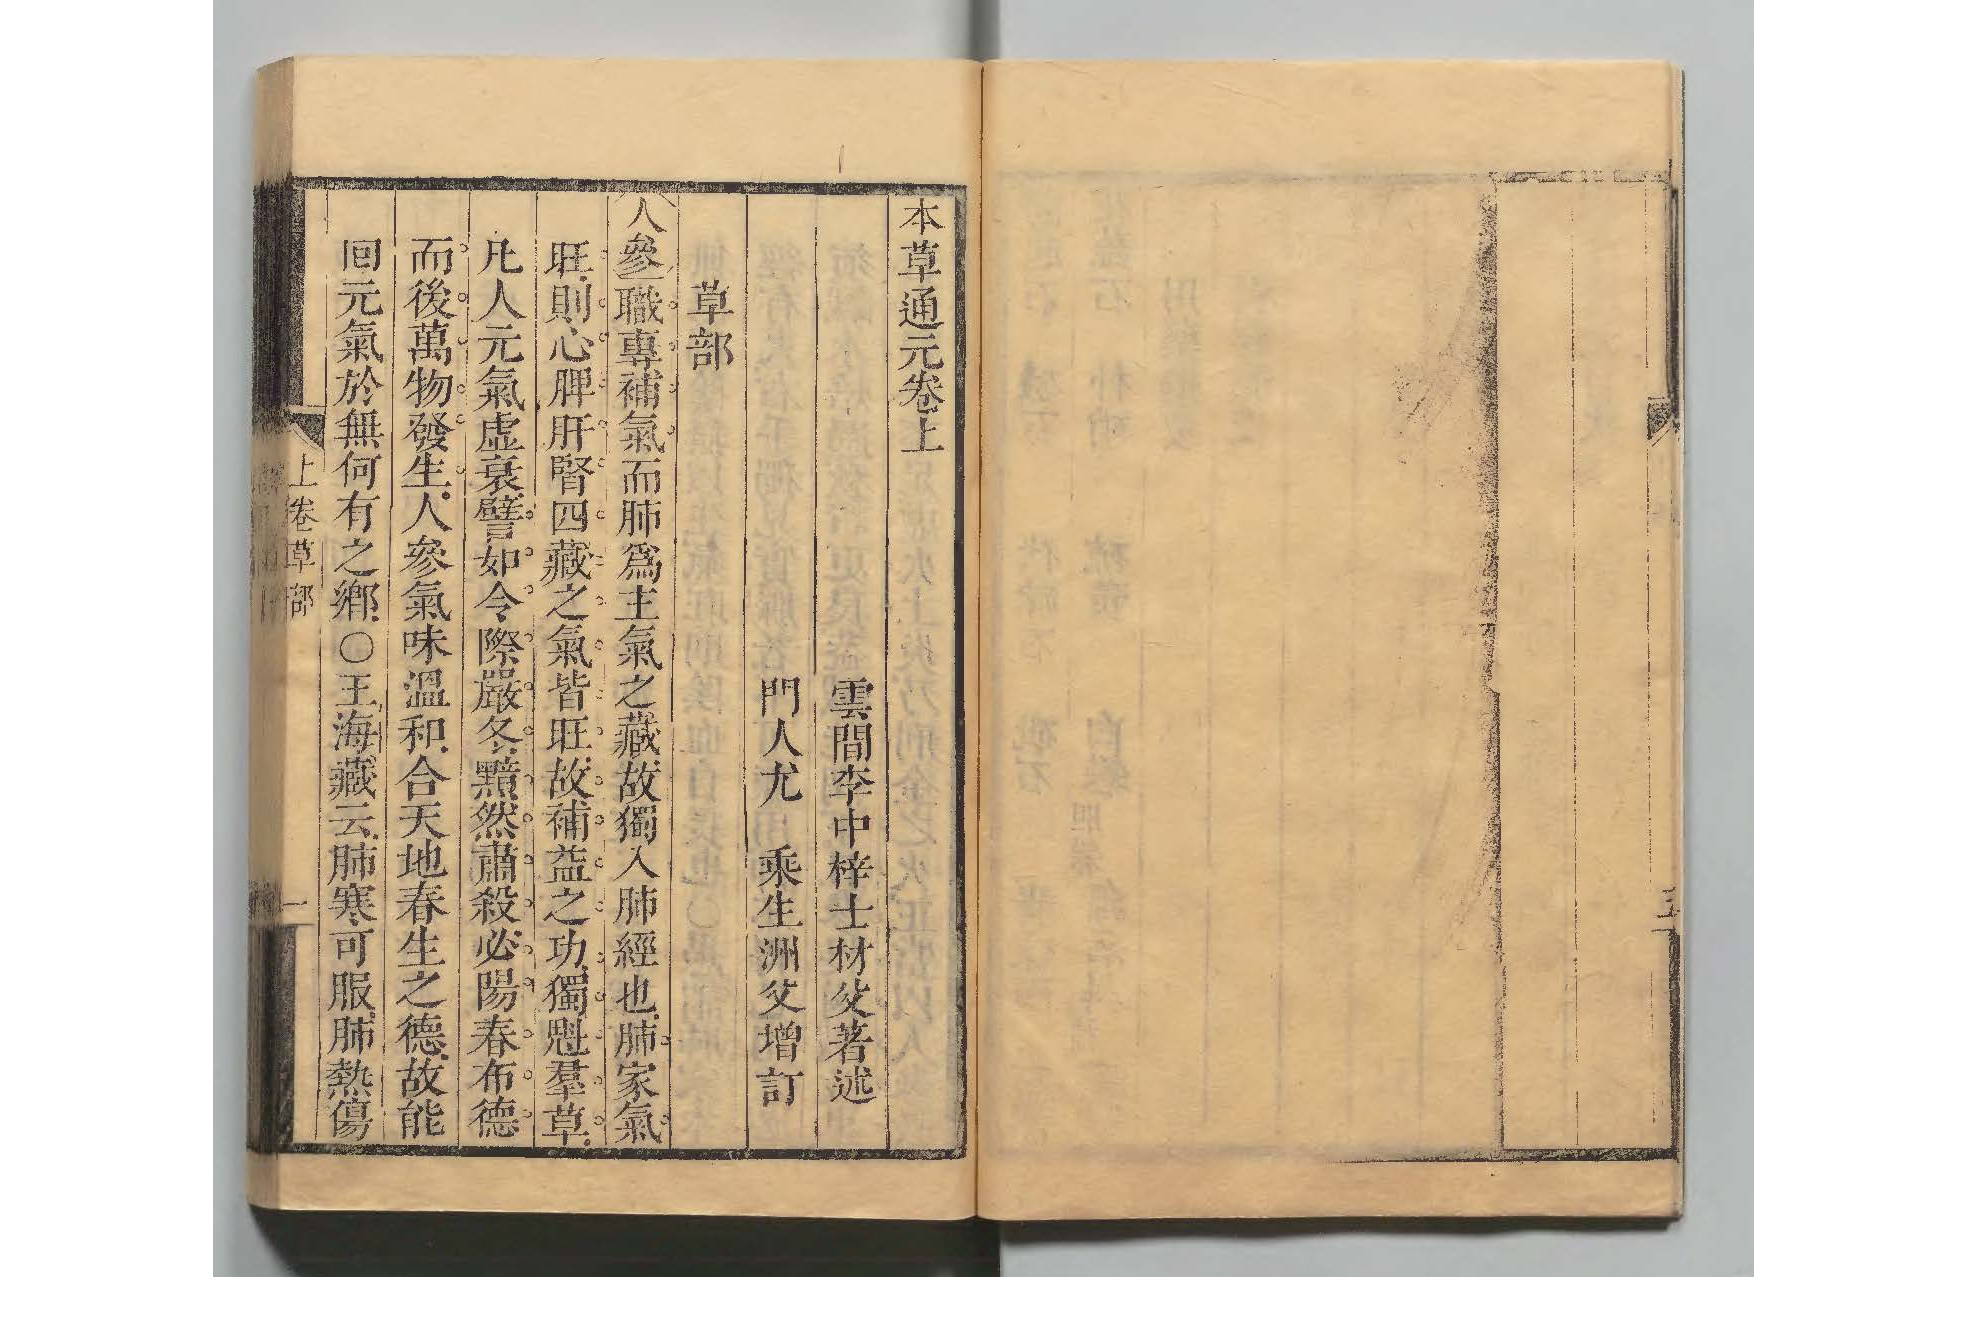 本草通元卷上
雲間李中梓士材父著述
門人尤乘生洲父增訂
草部
人參職專補氣而肺爲主氣之藏故獨入肺經也肺家氣
旺則心脾肝腎四藏之氣皆旺故補益之功獨魁羣草
凡人元氣虛衰譬如令際嚴冬黯然肅殺必陽春布德
而後萬物發生人參氣味溫和合天地春生之德故能
回元氣於無何有之鄉○王海藏云肺寒可服肺熱傷
上卷草部
一